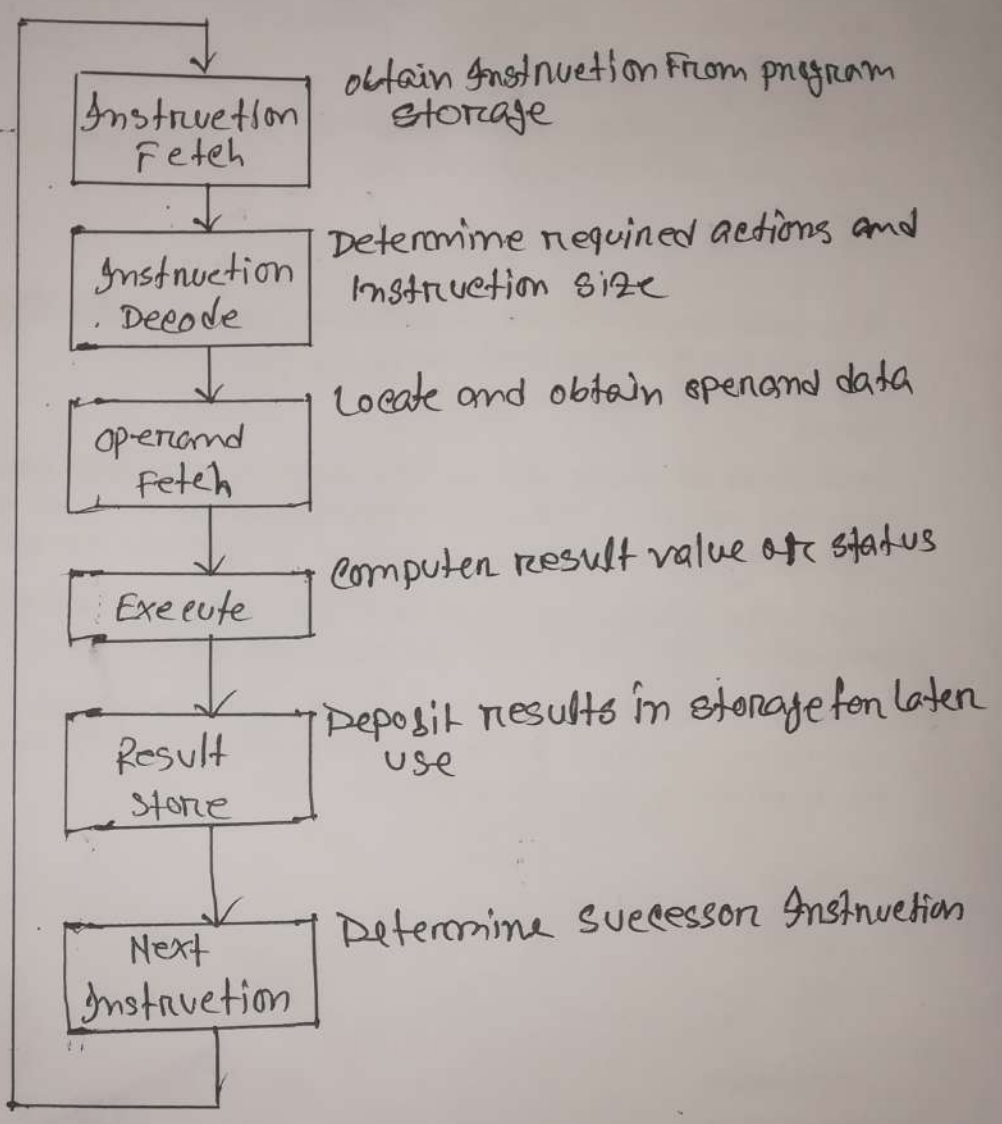 Instruction
Fetch
obtain Instruction From program
storage
Instruction
Decode
Determine required actions and
Instruction size
operand
Fetch
Locate and obtain operand data
Execute
Computer result value or status
Result
store
Deposit results in storage for later
use
Next
Instruction
Determine successor Instruction